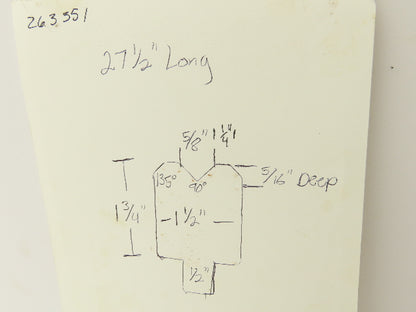 263551
27 1/2" Long
5/8" 1/4"
135° 90° 5/16" Deep
1 3/4" 1 1/2"
1/2"